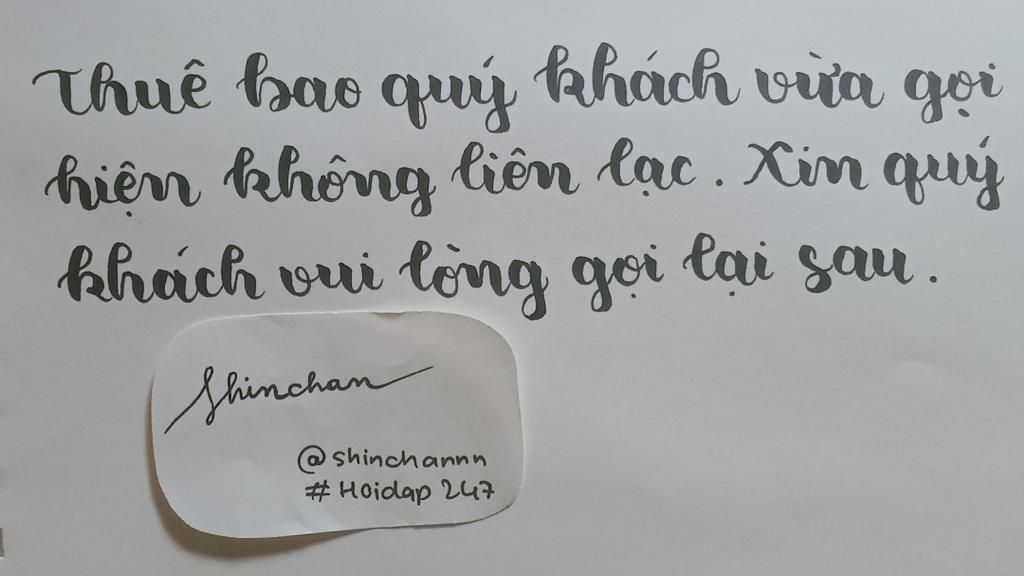 Thuê bao quý khách vừa gọi
hiện không liên lạc. Xin quý
khách vui lòng gọi lại sau.
Shinchan
@shinchannn
# Hoidap 247